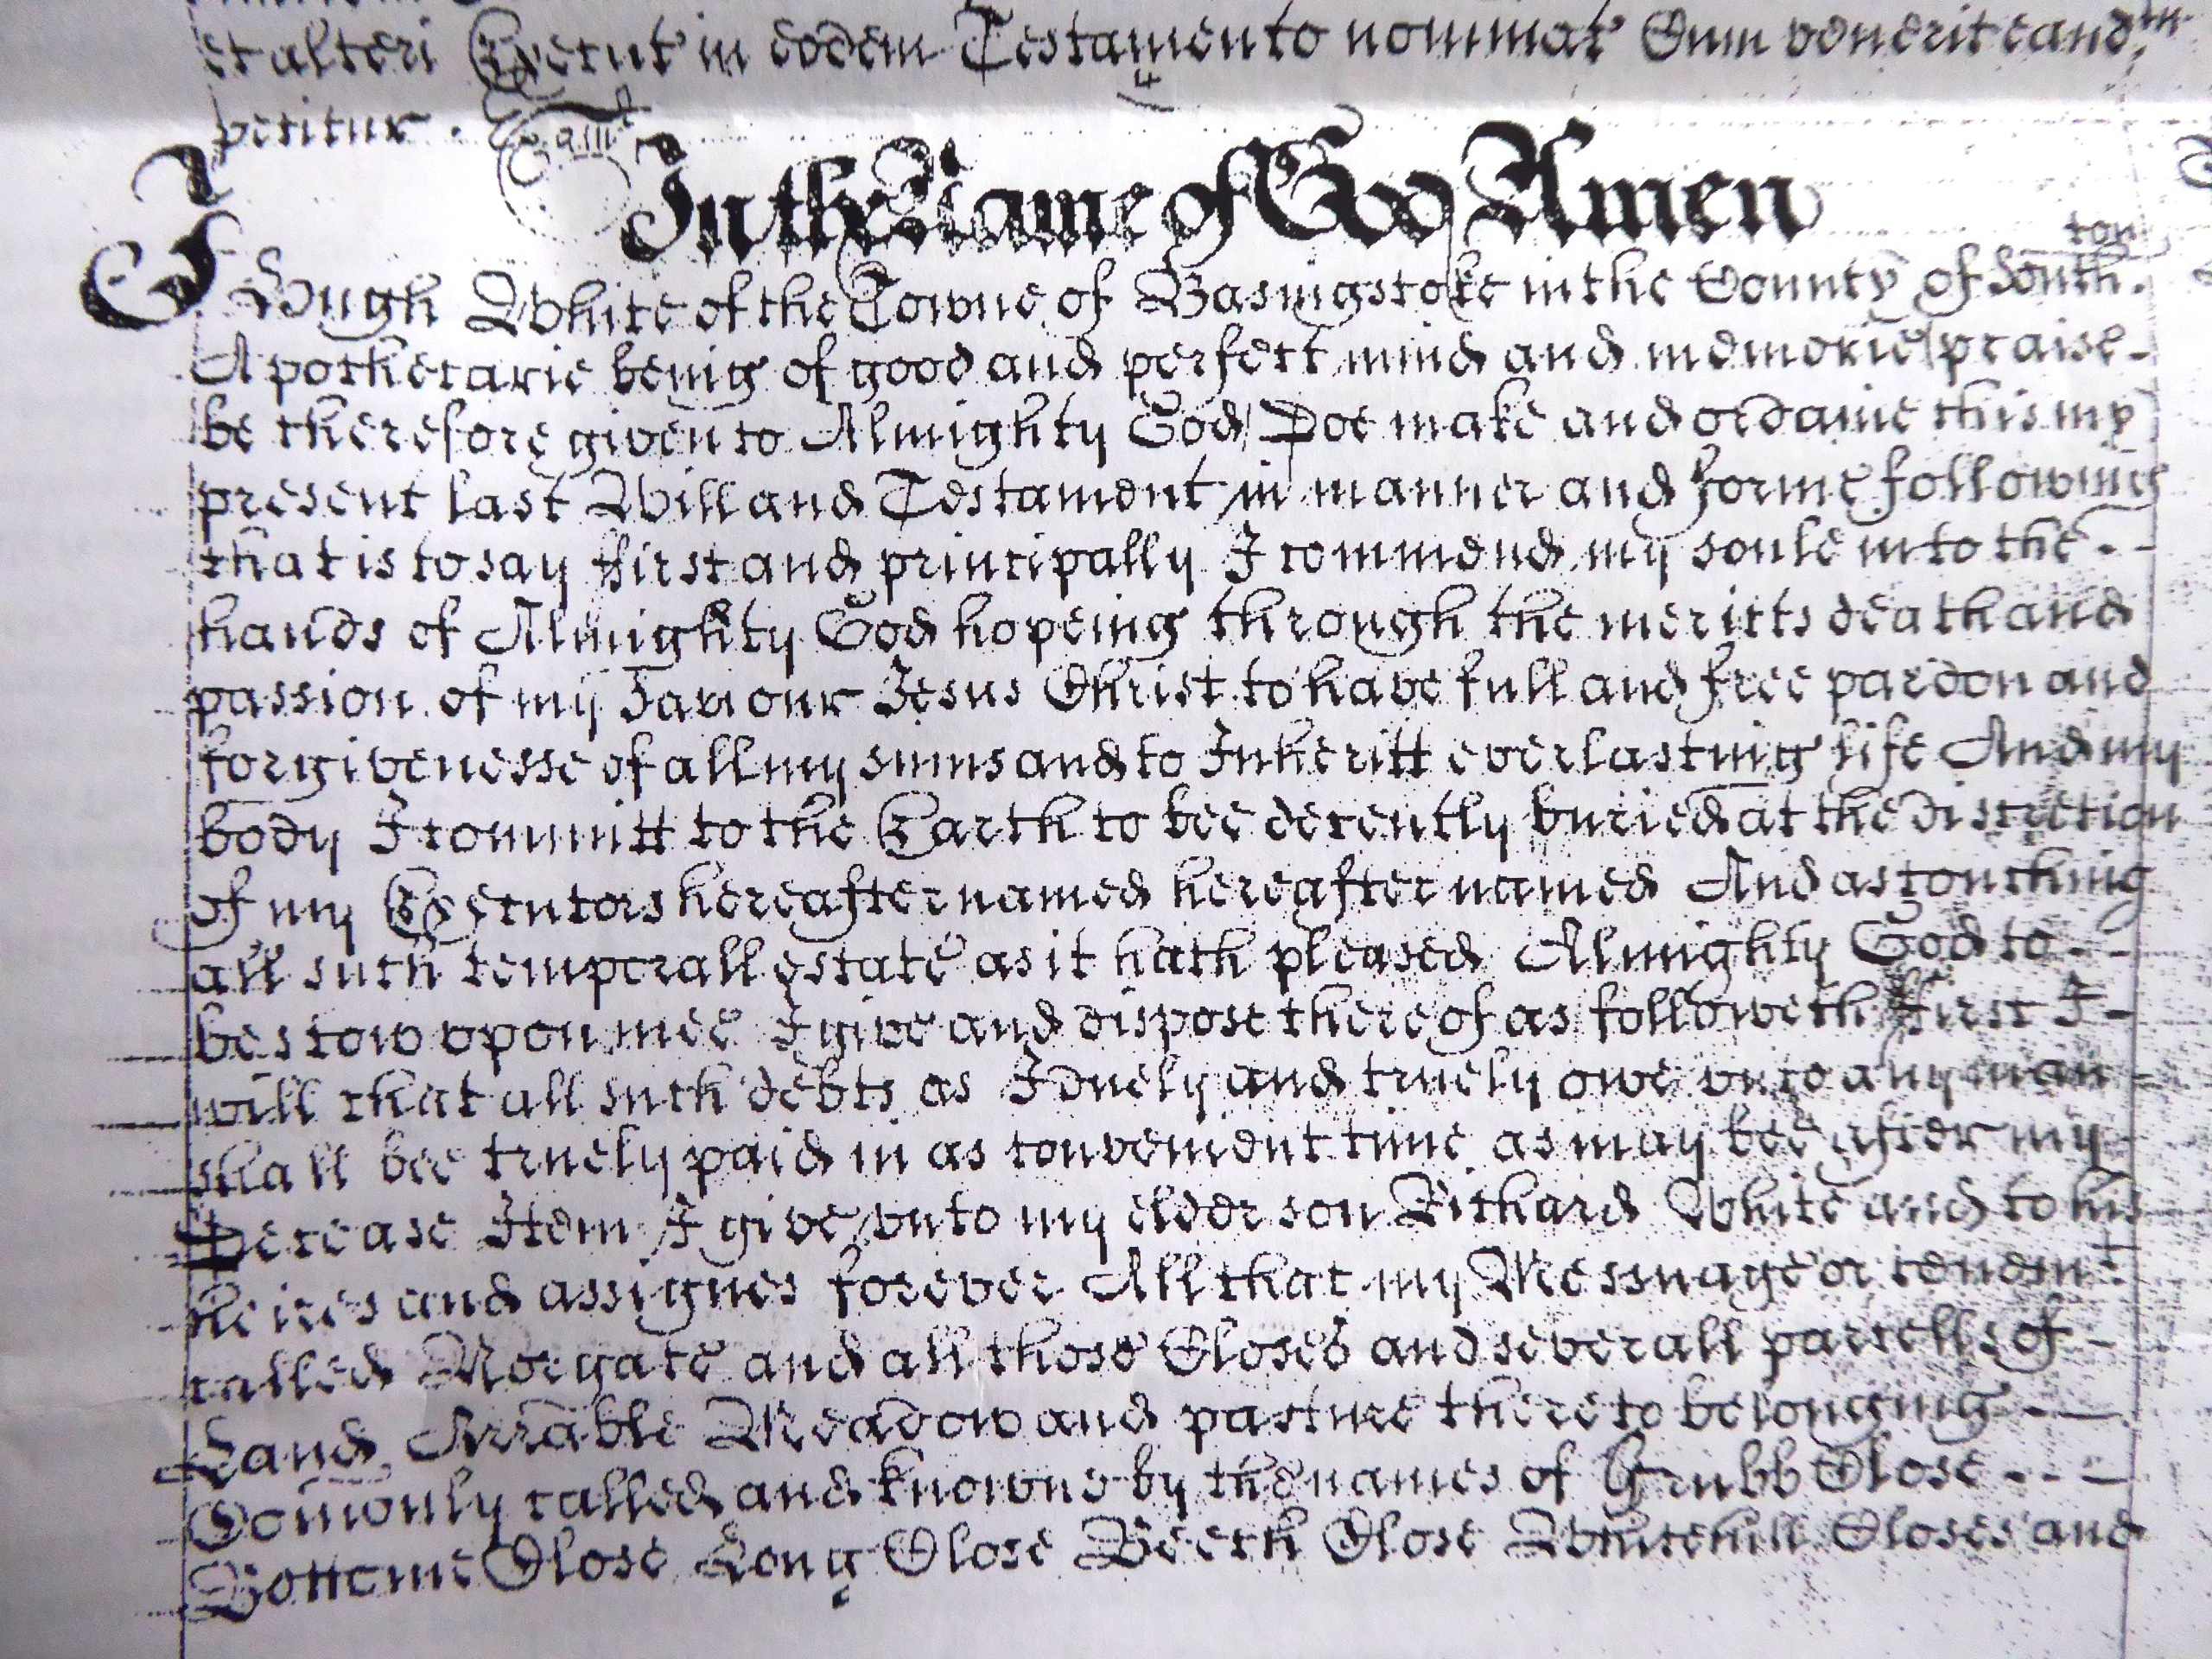 et alteri Execut' in eodem Testamento nominat' Cum venerit eand'm
petitur . Exam't
In the Name of God Amen
I Hugh White of the Towne of Basingstoke in the County of South'ton
Apothecarie being of good and perfect mind and memorie praise-
be therefore given to Almighty God Doe make and ordaine this my
present last Will and Testament in manner and forme following
that is to say ffirst and principally I commend my soule into the - -
hands of Almighty God hopeing through the meritts death and
passion of my Saviour Jesus Christ to have full and free pardon and
forgivenesse of all my sinns and to Inheritt everlasting life And my
body I committ to the Earth to bee decently buried at the discretion
of my Executors hereafter named hereafter named And as touching
all such temperall estate as it hath pleased Almighty God to - -
bestow vpon mee I give and dispose thereof as followeth ffirst I -
will that all such debts as I duely and truely owe vnto any man -
shall bee truely paid in as convenient time as may bee after my -
Decease Item I give vnto my elder son Richard White and to his
heires and assignes forever All that my Messuage or tenem't
called Norgate and all those Closes and severall parcells of -
Land Arrable Meadow and pasture thereto belonging - -
Comonly called and knowne by the names of Grubb Close - - -
Bottome Close Long Close Beech Close Whitehill Closes and